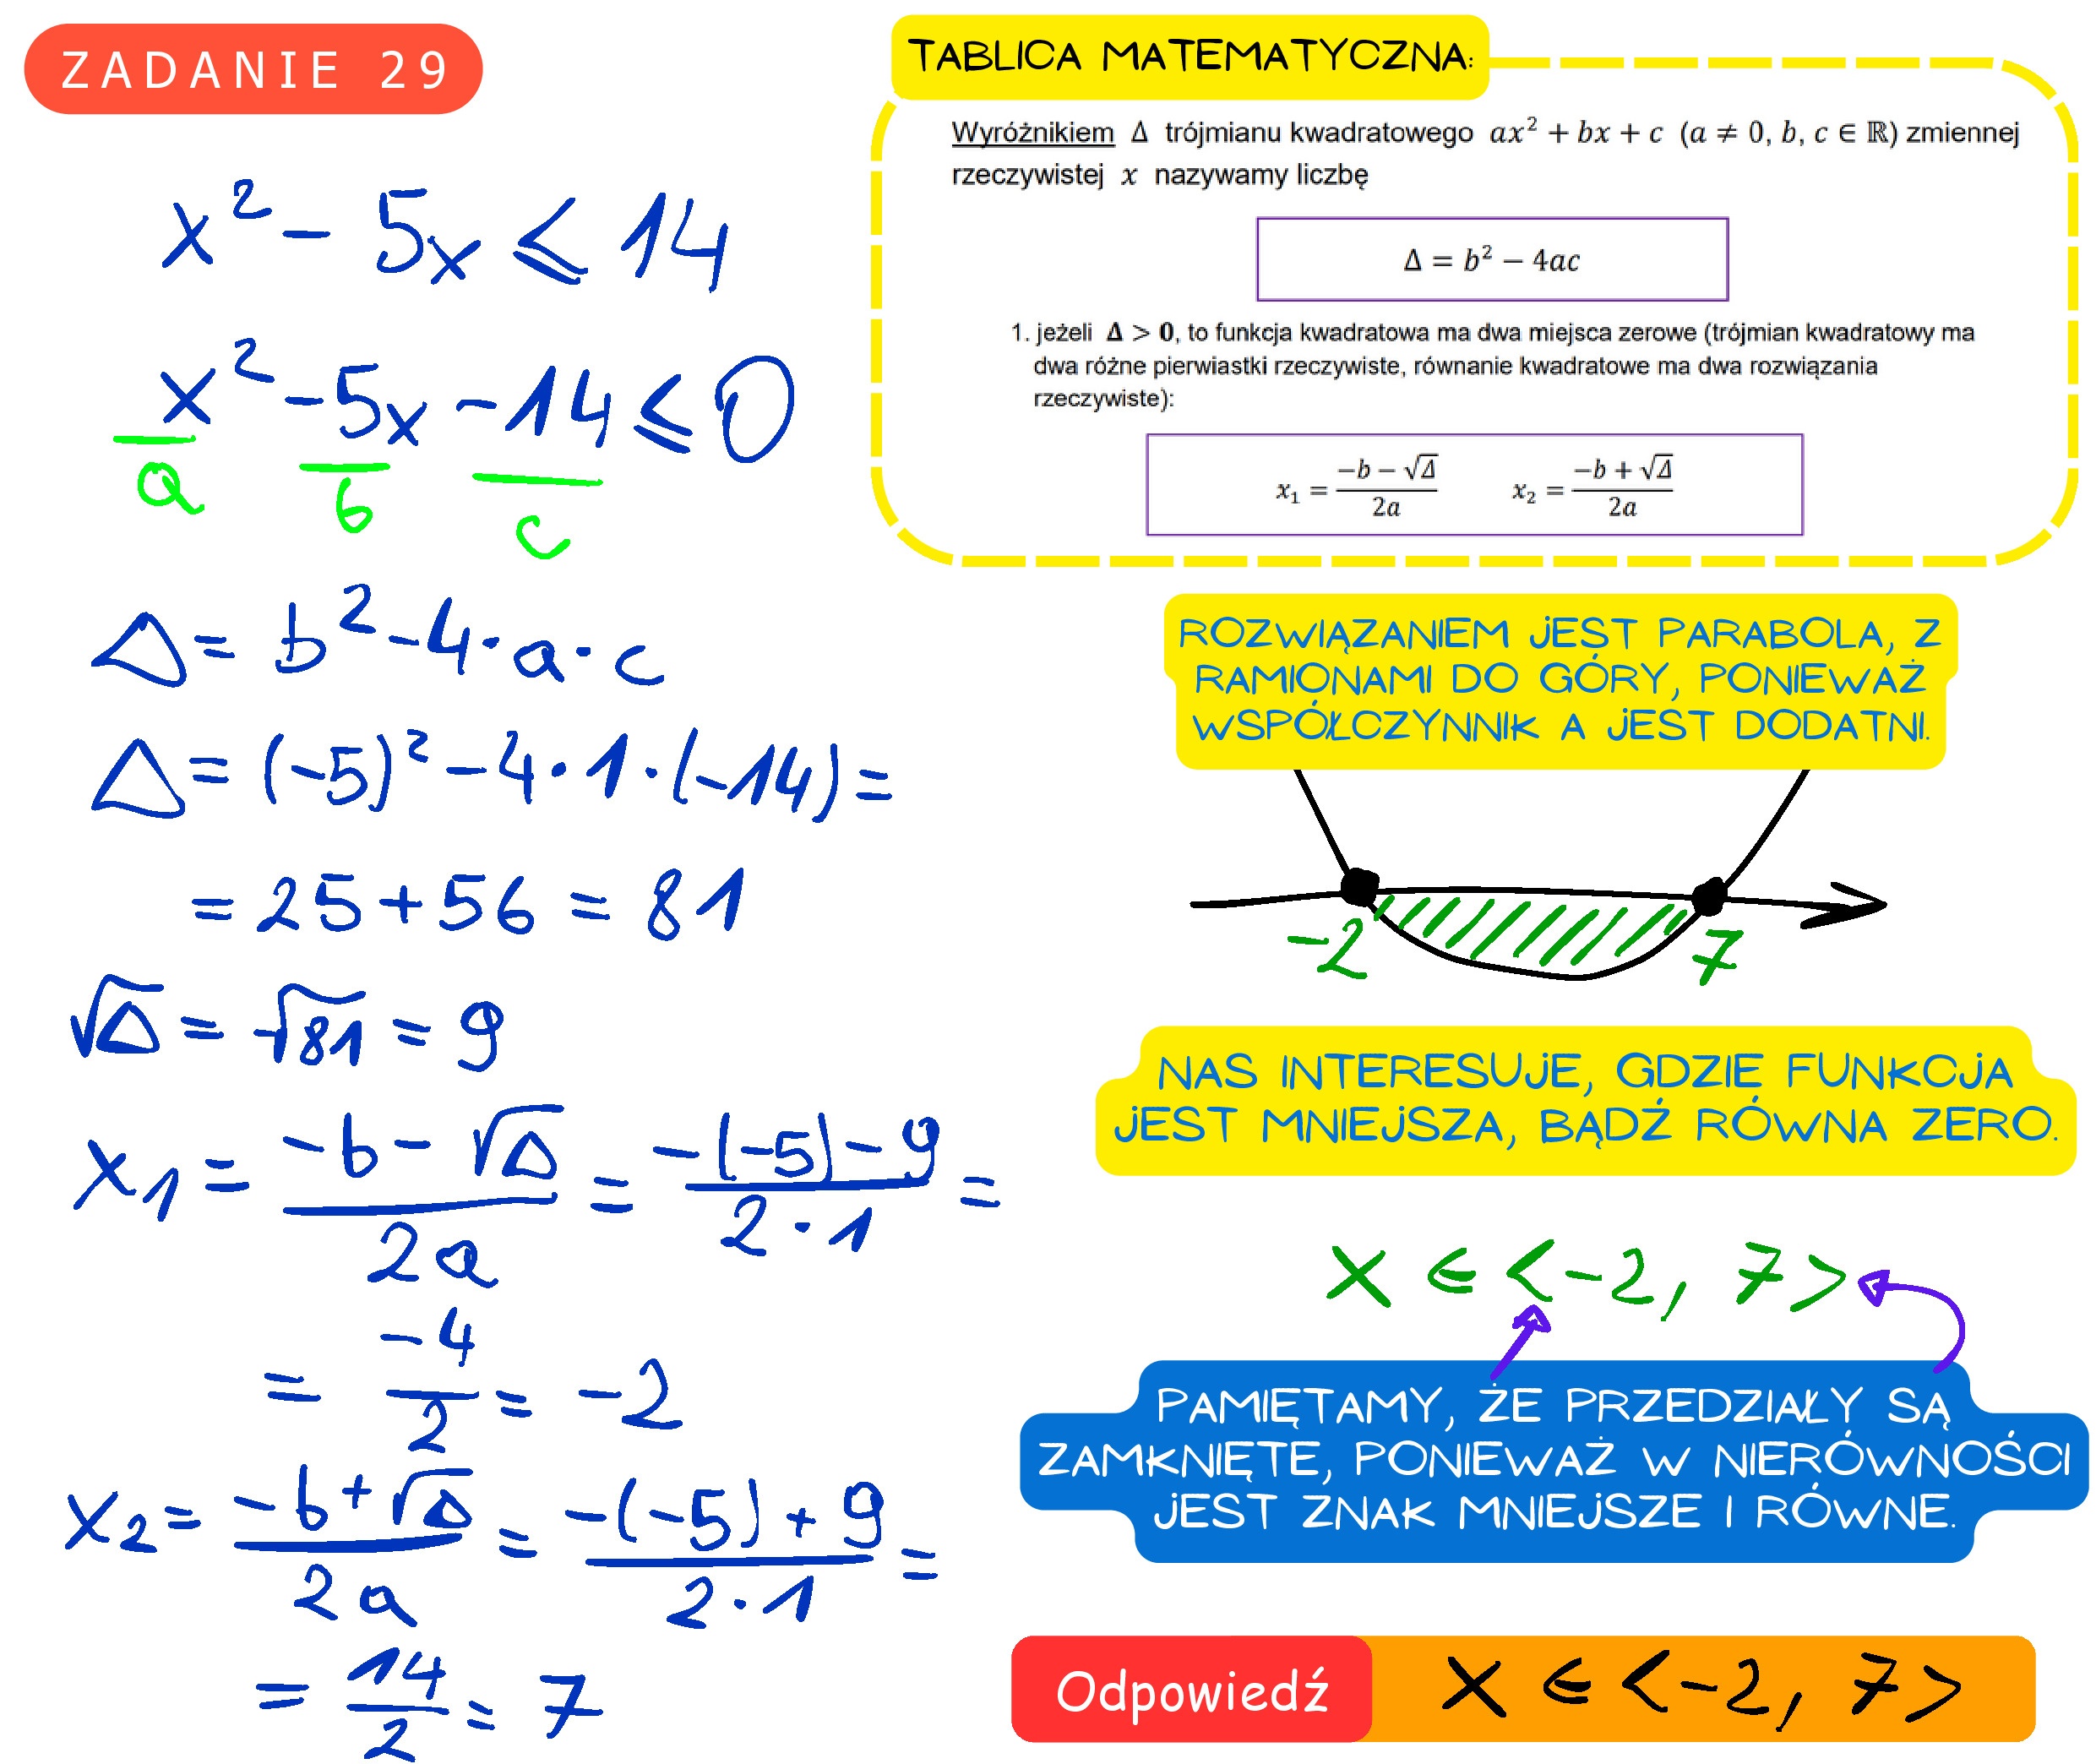 ZADANIE 29
x² - 5x ≤ 14
x² - 5x - 14 ≤ 0
a b c
Δ = b² - 4·a·c
Δ = (-5)² - 4·1·(-14) =
= 25 + 56 = 81
√Δ = √81 = 9
x₁ = (-b - √Δ)/2a = (-(-5) - 9)/(2·1) =
= -4/2 = -2
x₂ = (-b + √Δ)/2a = (-(-5) + 9)/(2·1) =
= 14/2 = 7
TABLICA MATEMATYCZNA:
Wyróżnikiem Δ trójmianu kwadratowego ax² + bx + c (a ≠ 0, b, c ∈ ℝ) zmiennej
rzeczywistej x nazywamy liczbę
Δ = b² − 4ac
1. jeżeli Δ > 0, to funkcja kwadratowa ma dwa miejsca zerowe (trójmian kwadratowy ma
dwa różne pierwiastki rzeczywiste, równanie kwadratowe ma dwa rozwiązania
rzeczywiste):
x₁ = (−b − √Δ)/2a x₂ = (−b + √Δ)/2a
ROZWIĄZANIEM JEST PARABOLA, Z
RAMIONAMI DO GÓRY, PONIEWAŻ
WSPÓŁCZYNNIK A JEST DODATNI.
-2 7
NAS INTERESUJE, GDZIE FUNKCJA
JEST MNIEJSZA, BĄDŹ RÓWNA ZERO.
x ∈ <-2, 7>
PAMIĘTAMY, ŻE PRZEDZIAŁY SĄ
ZAMKNIĘTE, PONIEWAŻ W NIERÓWNOŚCI
JEST ZNAK MNIEJSZE I RÓWNE.
Odpowiedź x ∈ <-2, 7>